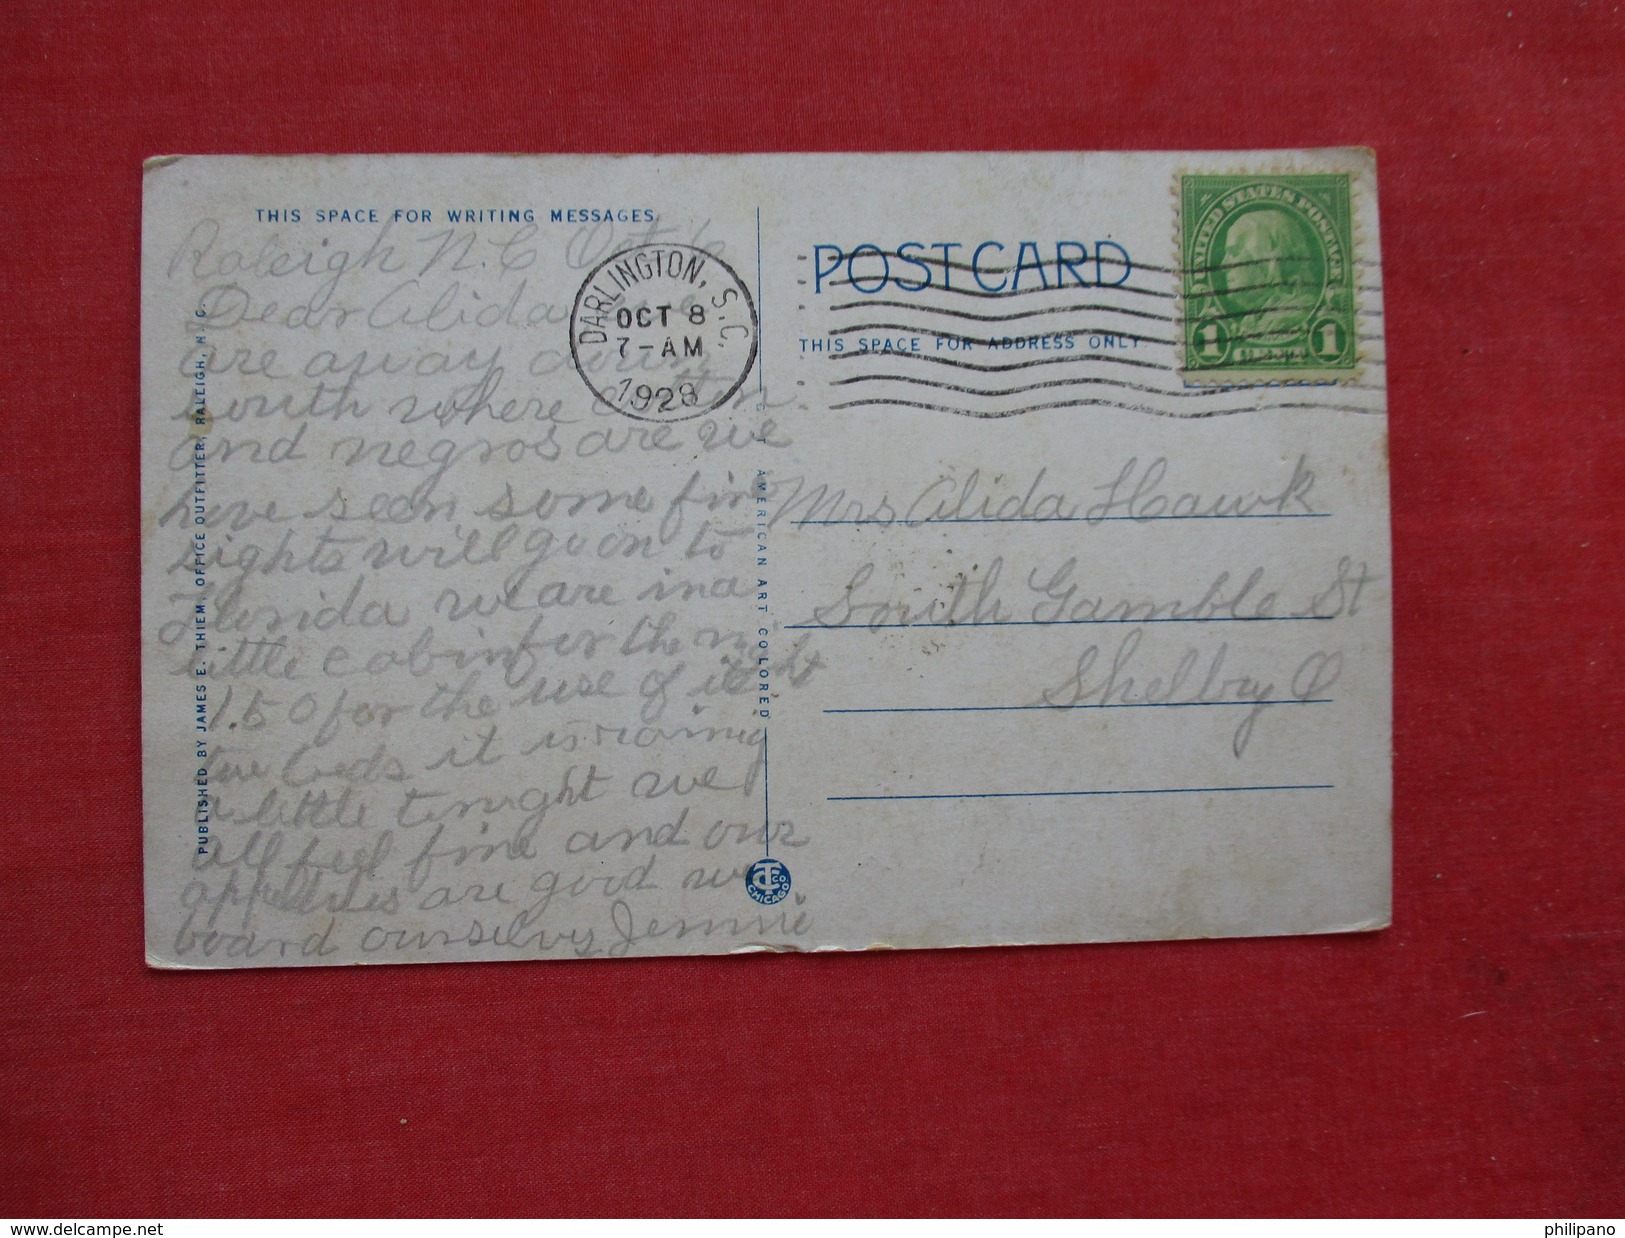 THIS SPACE FOR WRITING MESSAGES
Raleigh N.C Oct 6
Dear Alida we
are away down
south where cotton
and negros are we
have seen some fine
sights will go on to
Florida we are in a
little cabin for the night
1.50 for the use of it
two beds it is raining
a little tonight we
all feel fine and our
appetites are good we
board ourselves Jennie
PUBLISHED BY JAMES E. THIEM, OFFICE OUTFITTER, RALEIGH, N. C.
DARLINGTON, S.C.
OCT 8
7-AM
1928
C. T. AMERICAN ART COLORED
CT CO.
CHICAGO
POST CARD
THIS SPACE FOR ADDRESS ONLY
UNITED STATES POSTAGE
1 1
Mrs Alida Hawk
South Gamble St
Shelby O
delcampe.net
philipano